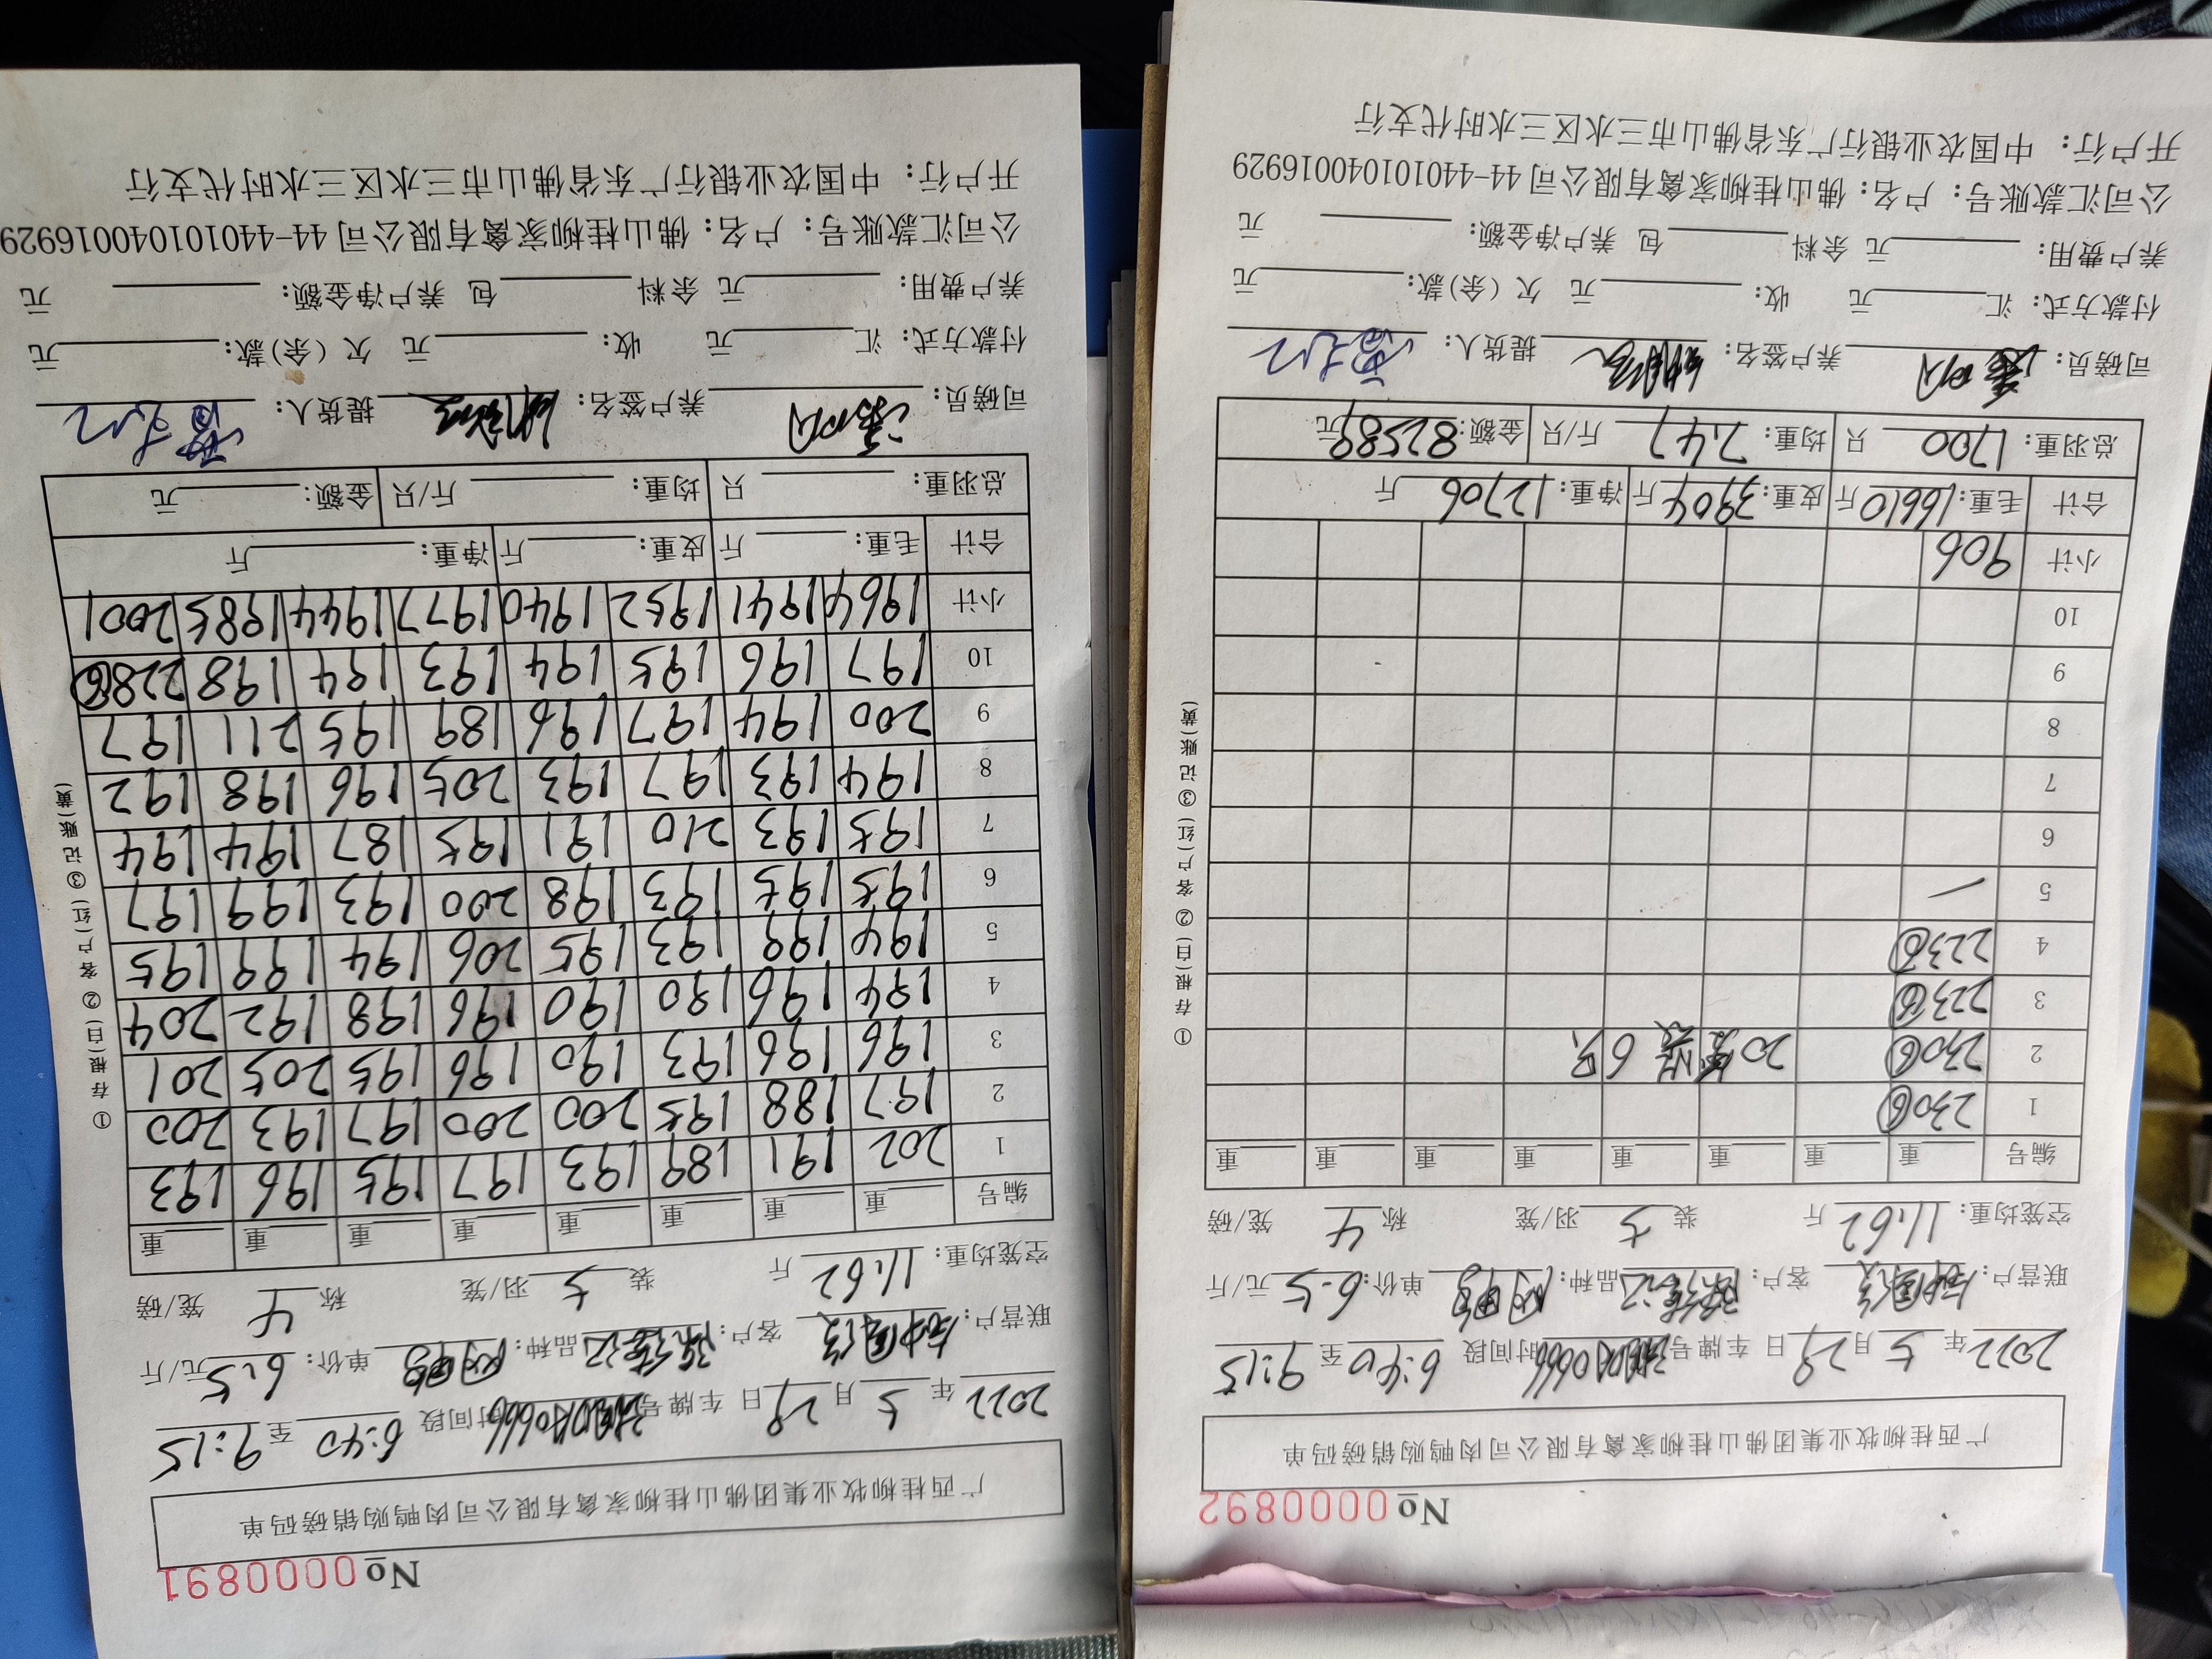 No 0000891
广西桂柳牧业集团佛山桂柳家禽有限公司肉鸭购销磅码单
2022年 5月29日 车牌号 时间段 6:40至9:15
联营户: 客户: 品种: 单价: 6.5元/斤
空笼均重: 11.62斤 装 5羽/笼 称 4 笼/磅
编号 重 重 重 重 重 重 重 重
1 202 191 189 193 197 195 196 193
2 197 188 195 200 200 197 193 200
3 196 196 193 190 196 195 205 201
4 194 196 190 190 196 198 192 204
5 194 199 193 195 206 194 199 195
6 195 195 193 198 200 193 199 197
7 195 193 210 191 195 187 194 194
8 194 193 197 193 205 196 198 192
9 200 194 197 196 189 195 211 197
10 197 196 195 194 193 194 198 228⑥
小计 1964 1941 1952 1940 1977 1944 1985 2001
合计 毛重: 斤 皮重: 斤 净重: 斤
总羽重: 只 均重: 斤/只 金额: 元
司磅员: 养户签名: 提货人:
付款方式: 汇 元 收: 元 欠(余)款: 元
养户费用: 元 余料 包 养户净金额: 元
公司汇款账号: 户名: 佛山桂柳家禽有限公司 44-440101040016929
开户行: 中国农业银行广东省佛山市三水区三水时代支行
①存根(白)②客户(红)③记账(黄)
No 0000892
广西桂柳牧业集团佛山桂柳家禽有限公司肉鸭购销磅码单
2022年 5月29日 车牌号 时间段 6:40至9:15
联营户: 客户: 品种: 单价: 6.5元/斤
空笼均重: 11.62斤 装 5羽/笼 称 4 笼/磅
编号 重 重 重 重 重 重 重 重
1 230⑥
2 230⑥ 20笼装6只
3 223⑥
4 223⑥
5
6
7
8
9
10
小计 906
合计 毛重: 16610斤 皮重: 3904斤 净重: 12706斤
总羽重: 1700只 均重: 7.47斤/只 金额: 82589元
司磅员: 养户签名: 提货人:
付款方式: 汇 元 收: 元 欠(余)款: 元
养户费用: 元 余料 包 养户净金额: 元
公司汇款账号: 户名: 佛山桂柳家禽有限公司 44-440101040016929
开户行: 中国农业银行广东省佛山市三水区三水时代支行
①存根(白)②客户(红)③记账(黄)